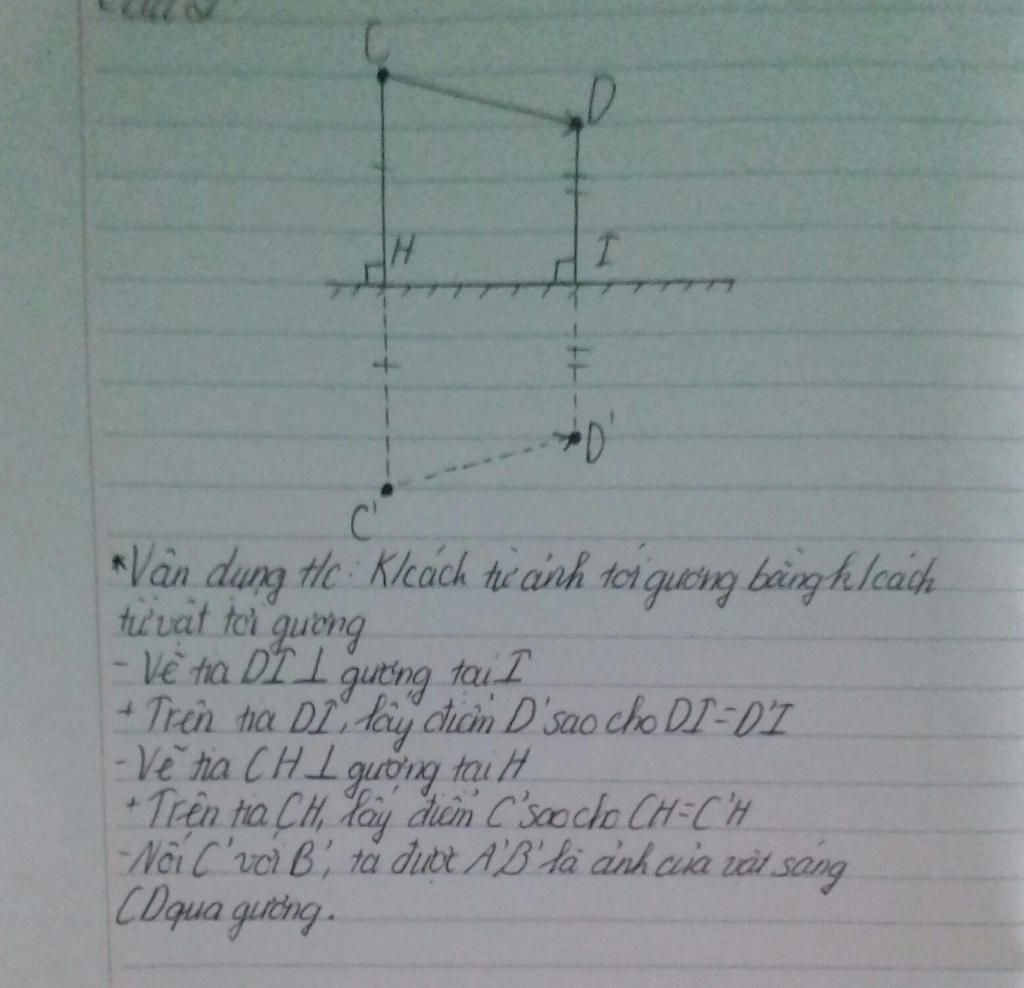 C
D
H
I
D'
C'
*Vận dụng t/c: K/cách từ ảnh tới gương bằng k/cách
từ vật tới gương
- Vẽ tia DI ⊥ gương tại I
+ Trên tia DI, lấy điểm D' sao cho DI = D'I
- Vẽ tia CH ⊥ gương tại H
+ Trên tia CH, lấy điểm C' sao cho CH = C'H
- Nối C' với B', ta được A'B' là ảnh của vật sáng
CD qua gương.